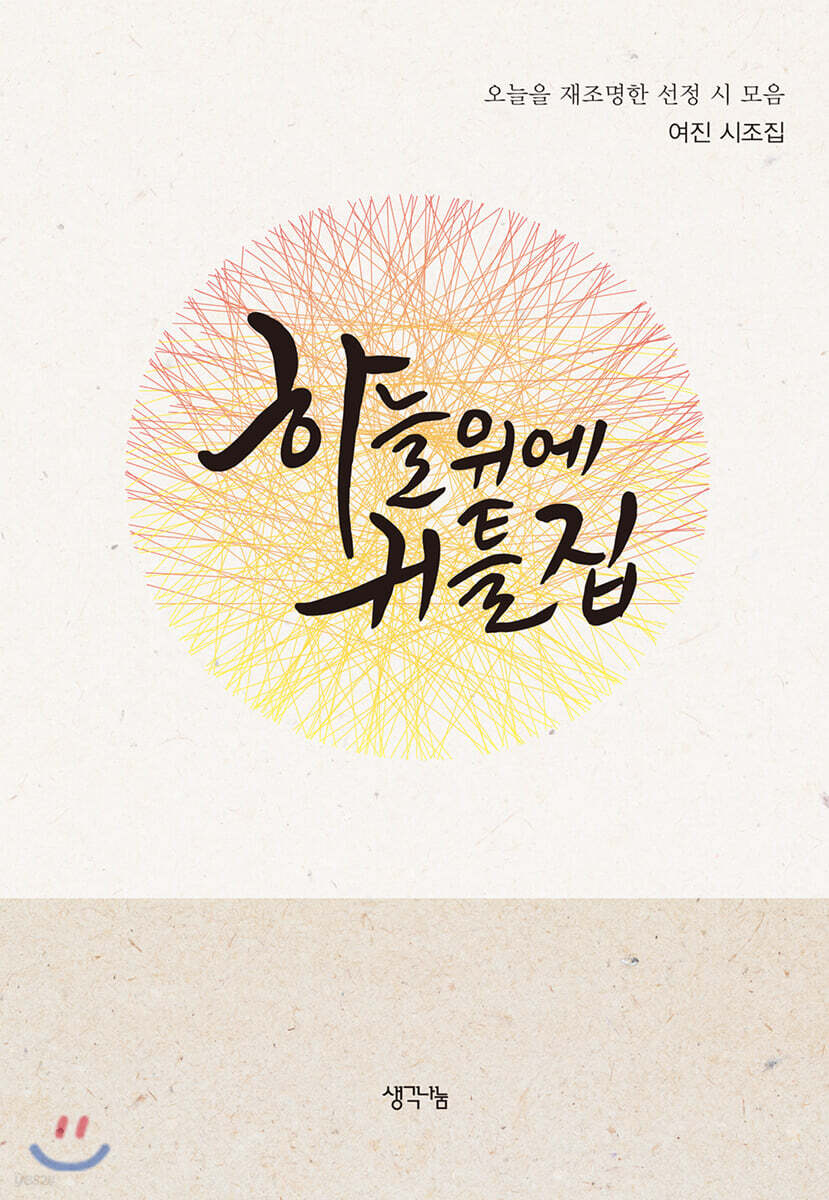 오늘을 재조명한 선정 시 모음
여진 시조집
하늘위에
귀틀집
생각나눔